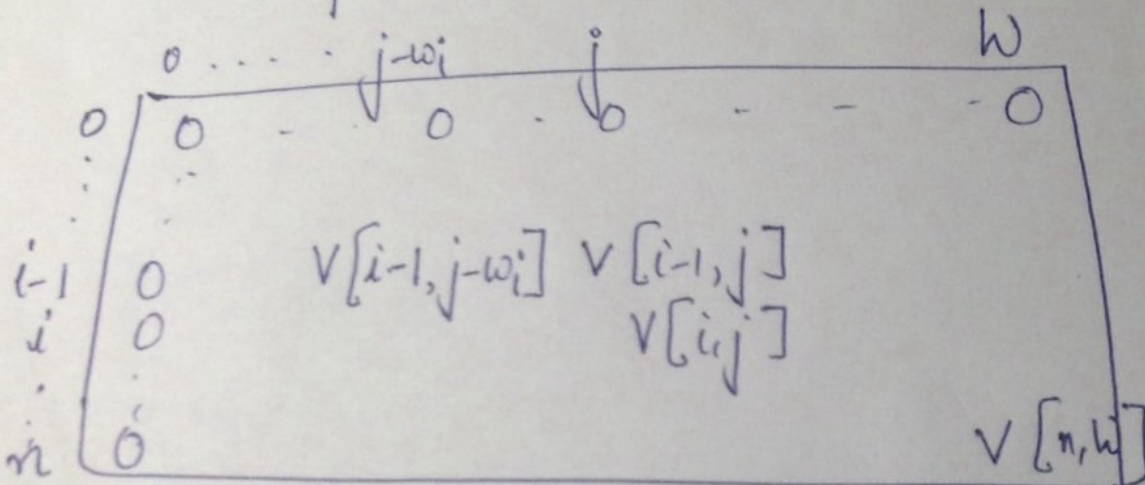 0 .... j-wi j W
0 0 - . 0 . 0 - - - 0
i-1 0 V[i-1, j-wi] V[i-1, j]
i 0 V[i,j]
n 0 V[n,W]